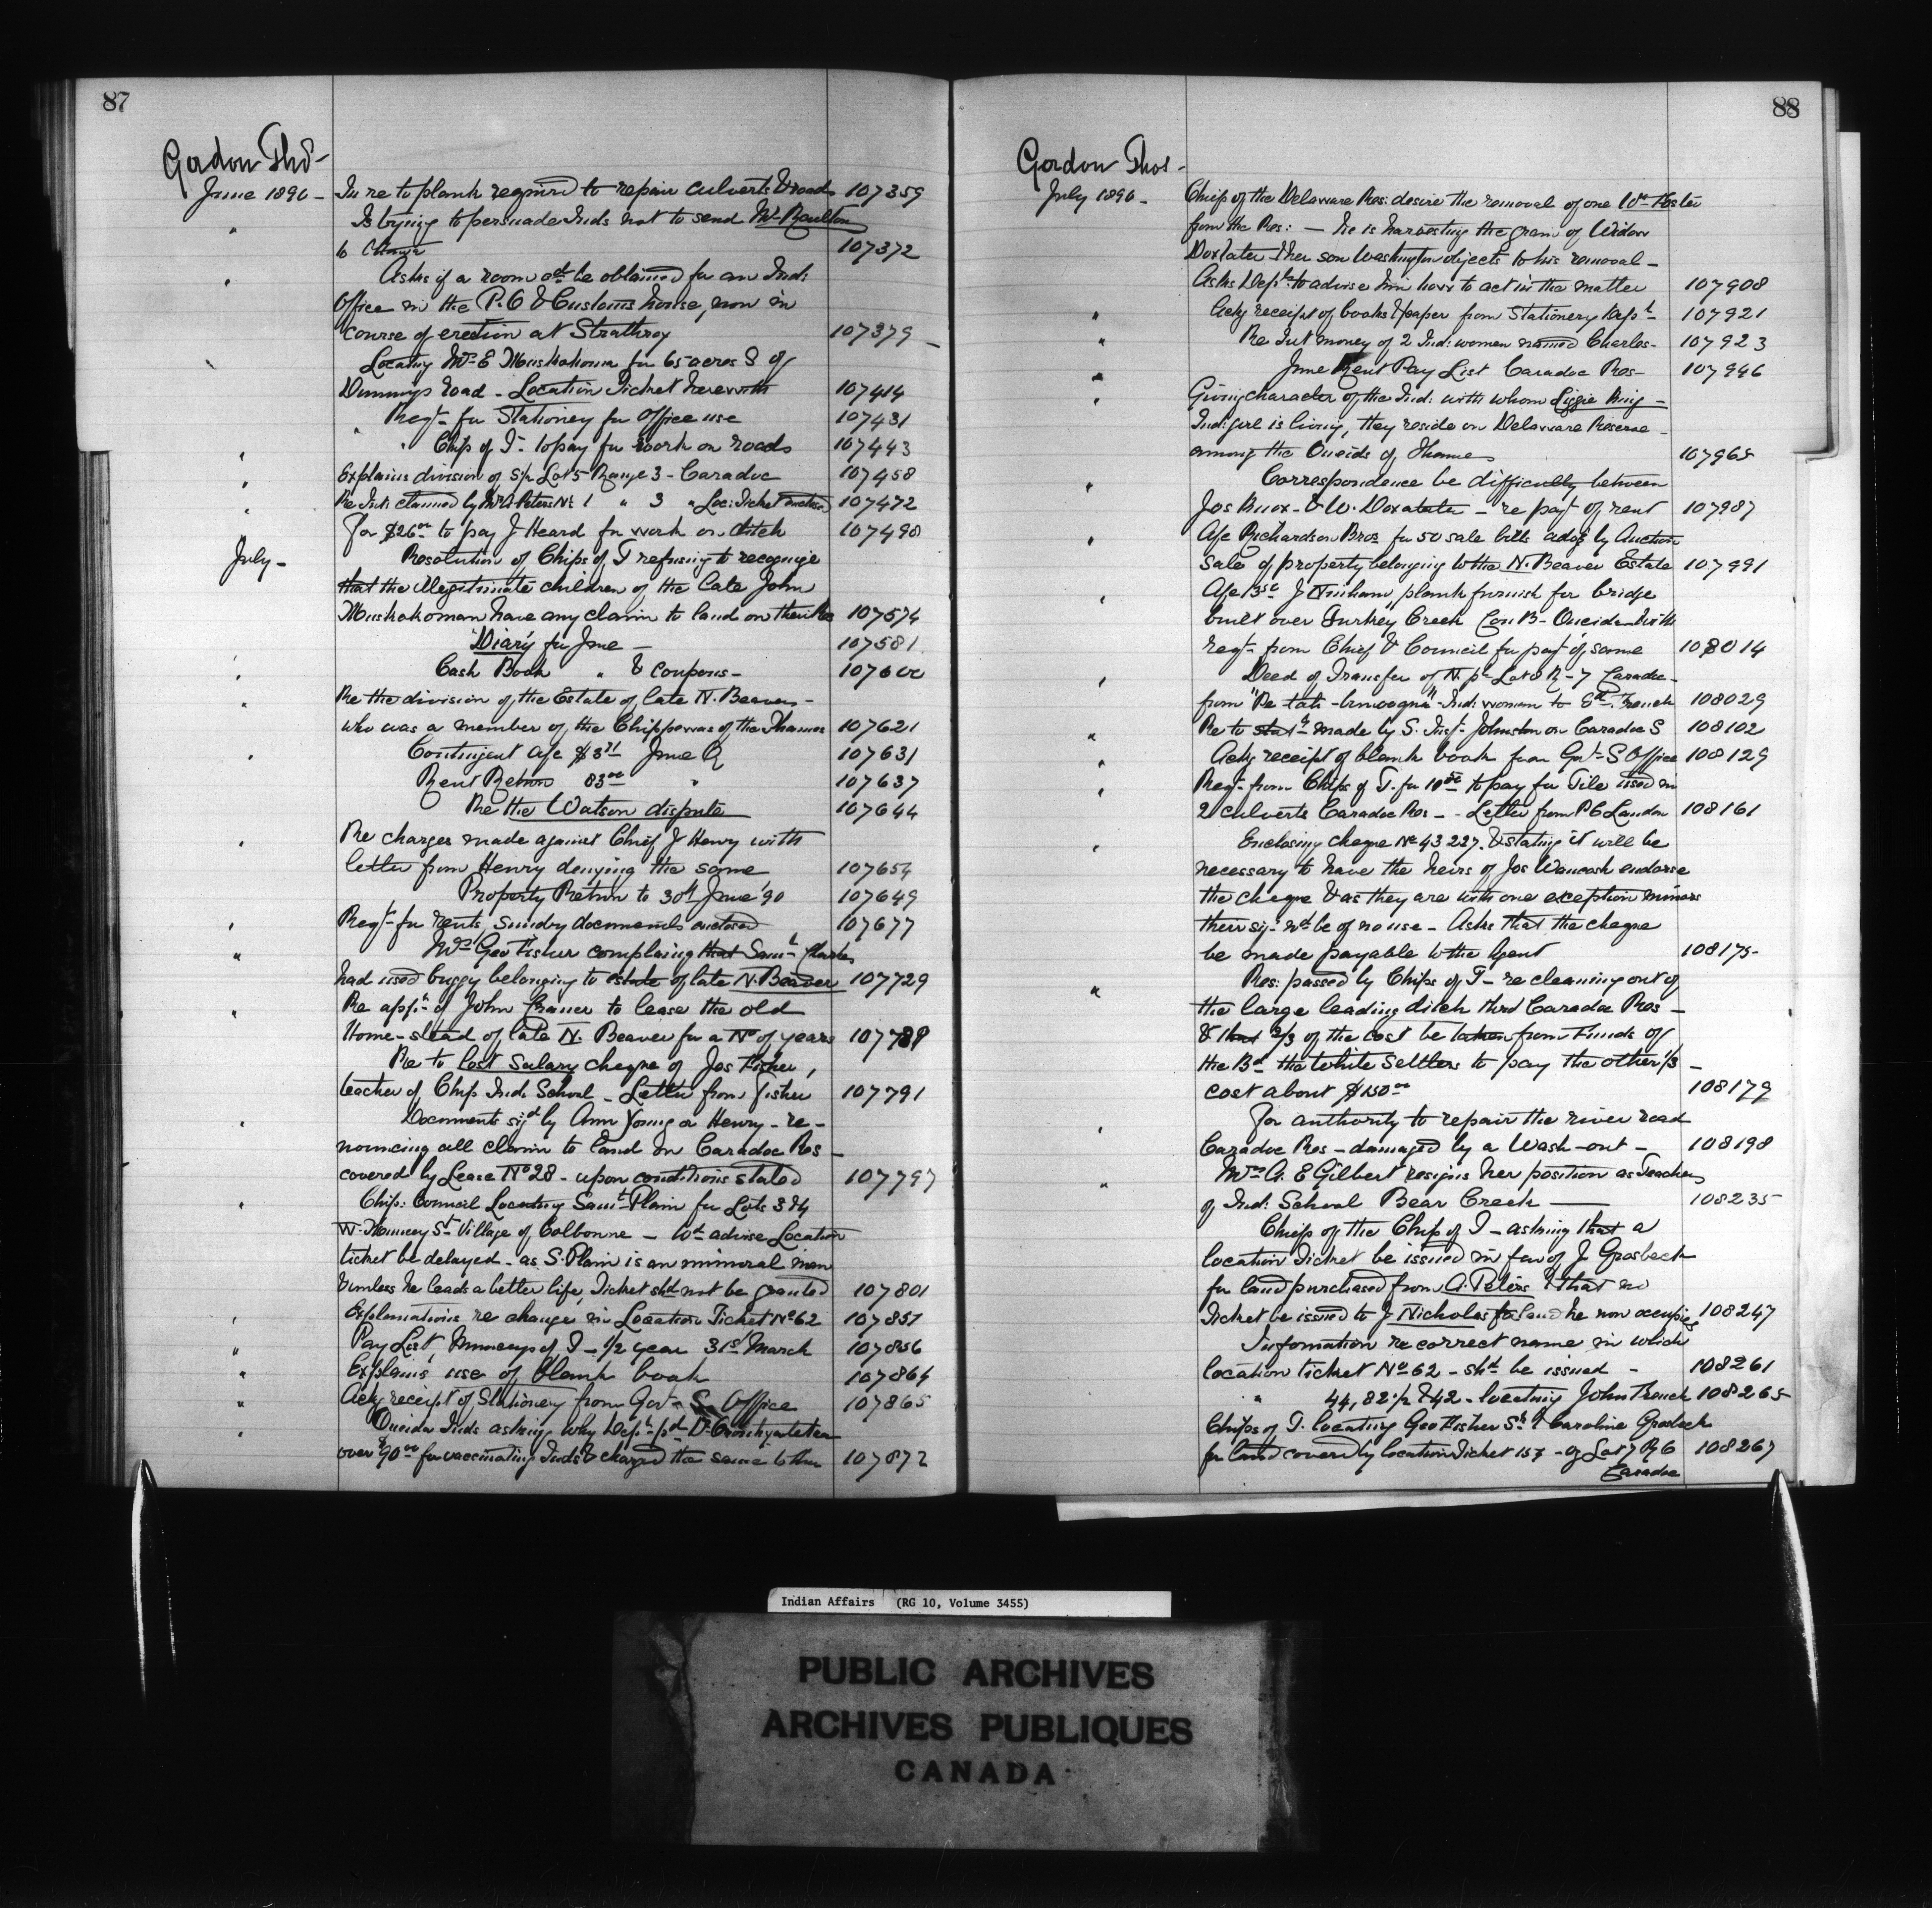 87
Gordon Thos -
June 1890 - In re to plank required to repair culverts & roads 107359
" Is trying to persuade Inds not to send Mr Raulton
to Ottawa 107372
" Asks if a room cd be obtained for an Ind:
Office in the P.O & Customs house, now in
course of erection at Strathroy 107379
Locating Mrs E Muskokoman for 65 acres S of
Dummys road - Location Ticket herewith 107414
Reqt for Stationery for Office use 107431
" Chips of T- to pay for work on roads 107443
" Explains division of S½ Lot 5 Range 3 - Caradoc 107458
" Re Int: claimed by A Peters N½ 1 " 3 " Loc: Ticket enclosed 107472
" For $26 00 to pay J Heard for work on ditch 107498
July - Resolution of Chips of T refusing to recognize
that the illegitimate children of the late John
Muskokoman have any claim to land on their Res 107574
"Diary for June - 107581
" Cash Book " & coupons - 107600
" Re the division of the Estate of late N. Beaver -
who was a member of the Chippewas of the Thames 107621
" Contingent a/c $3 71 June Q 107631
Rent Return 83 00 " 107637
Re the Watson dispute 107644
" Re charges made against Chief J Henry with
letter from Henry denying the same 107654
Property Return to 30th June '90 107649
" Reqt for rents, Sundry documents enclosed 107677
" Mrs Geo Fisher complaining that Saml Charles
had used buggy belonging to estate of late N. Beaver 107729
" Re appn of John France to lease the old
Home-stead of late N. Beaver for a No of years 107789
Re to Lost Salary cheque of Jos Fisher,
teacher of Chip Ind: School - Letter from Fisher 107791
" Documents sigd by Ann Young or Henry - re-
nouncing all claim to land on Caradoc Res -
covered by Lease No 28 - upon conditions stated 107797
" Chip: Council Locating Saml Plain for Lots 3 & 4
W. St Village of Colborne - Wd advise Location
ticket be delayed - as S. Plain is an immoral man
& unless he leads a better life, Ticket shd not be granted 107801
" Explanations re change in Location Ticket No 62 107851
" Pay List, Munceys of T - 1/2 year 31st March 107856
" Explains use of blank book 107864
" Ackg receipt of Stationery from Govt S. Office 107865
" Oneida Inds asking why Dept pd Dr
over $90 00 for vaccinating Inds & charged the same to them 107872
88
Gordon Thos -
July 1890 - Chiefs of the Delaware Res: desire the removal of one Wm Foster
from the Res: - he is harvesting the grain of Widow
Doxtater & her son Washington objects to his removal -
Asks Dept to advise him how to act in the matter 107908
" Ackg receipt of books & paper from Stationery Dept 107921
" Re Int money of 2 Ind: women named Charles - 107923
" June Rent Pay List Caradoc Res - 107946
" Giving character of the Ind: with whom Lizzie King -
Ind: girl is living, they reside on Delaware Reserve -
among the Oneida of Thames 107965
" Correspondence be difficulty between
Jos Knox - & W. Doxtater - re payt of rent 107987
" A/c Richardson Bros for 50 sale bills advg by Auction
Sale of property belonging to the N. Beaver Estate 107991
" A/c J Ninham, plank furnish for bridge
built over Turkey Creek Con B - Oneida with
reqt from Chief & Council for payt of same 108014
" Deed of Transfer of N. pt Lot 8 R - 7 Caradoc -
from Ind: woman to Ed French 108029
" Re to made by S. Inspr Johnston on Caradoc S 108102
" Ackg receipt of blank book from Govt S Office 108129
" Reqt from Chips of T. for 10 00 to pay for Tile used in
2 culverts Caradoc Res - - Letter from P C London 108161
" Enclosing cheque No 43227. & stating it will be
necessary to have the heirs of Jos Waucosh endorse
the cheque & as they are with one exception minors
their sig- wd be of no use - Asks that the cheque
be made payable to the Agent 108175-
" Res: passed by Chips of T - re cleaning out of
the large leading ditch thro Caradoc Res -
& that 2/3 of the cost be taken from Funds of
the Bd the White Settlers to pay the other 1/3 -
cost about $150 00 108179
" For authority to repair the river road
Caradoc Res - damaged by a Wash-out - 108198
" Mrs A. E Gilbert resigns her position as Teacher
of Ind: School Bear Creek - 108235
Chiefs of the Chip of T - asking that a
location Ticket be issued in fav of J Grosbeck
for land purchased from A. Peters & that no
Ticket be issued to J Nicholas for land he now occupies 108247
Information re correct name in which
location ticket No 62 - shd be issued - 108261
" 44, 82 1/2 & 42 - locating John French 108265
Chips of T. locating Geo Fisher Sr & Caroline Grosbeck
for land covered by location Ticket 157 - of Lot 7 R 6 108267
Caradoc
Indian Affairs (RG 10, Volume 3455)
PUBLIC ARCHIVES
ARCHIVES PUBLIQUES
CANADA